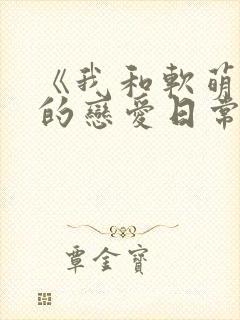 《我和軟萌
的戀愛日常
覃金寶